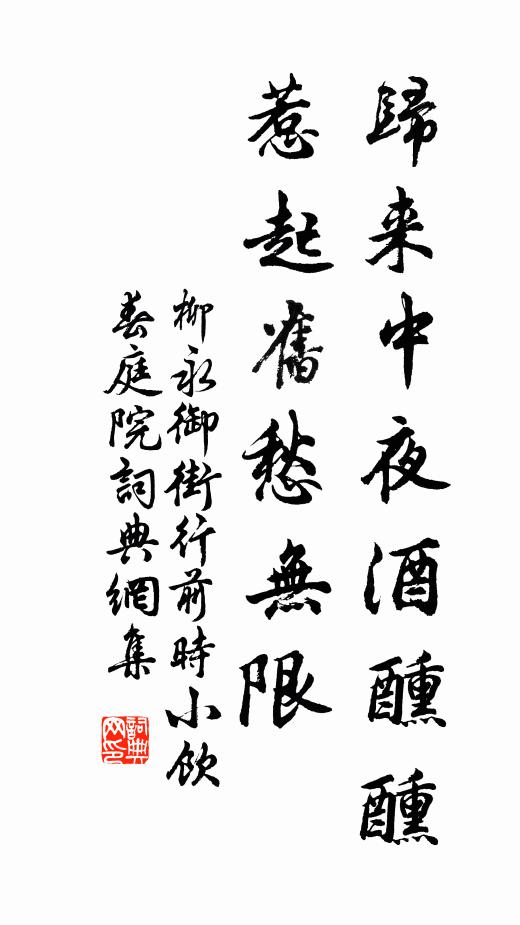 歸来中夜酒醺醺
惹起舊愁無限
柳永御街行前時小飲
春庭院詞典網集
詞典網印